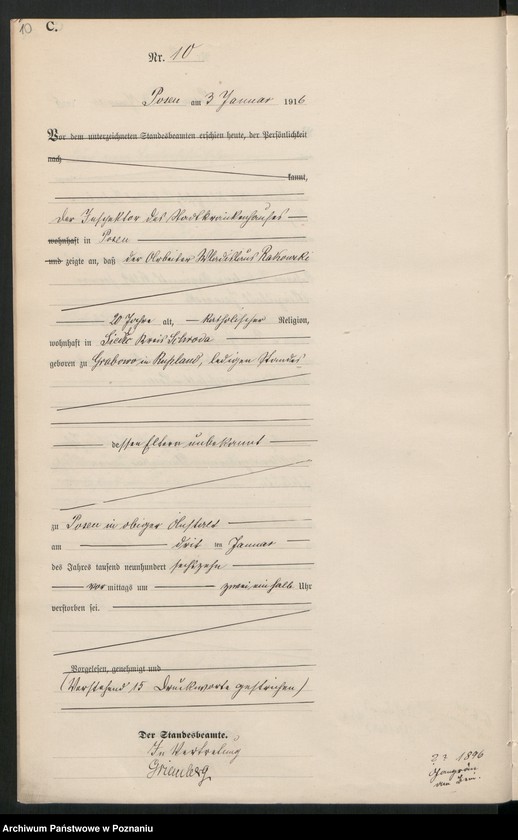 10 C.
Nr. 10
Posen am 3 Januar 1916
Vor dem unterzeichneten Standesbeamten erschien heute, der Persönlichkeit
nach
kannt,
der Inspektor des Stadtkrankenhauses
wohnhaft in Posen
und zeigte an, daß der Arbeiter Wladislaus Rakowski
20 Jahre alt, katholischer Religion,
wohnhaft in Kreis Schroda
geboren zu Grabowo in Rußland, ledigen Standes
dessen Eltern unbekannt
zu Posen in obiger Anstalt
am drit ten Januar
des Jahres tausend neunhundert sechszehn
vor mittags um zwei einhalb Uhr
verstorben sei.
Vorgelesen, genehmigt und
(Vorstehend 15 Druckworte gestrichen)
Der Standesbeamte.
In Vertretung
1896
Archiwum Państwowe w Poznaniu